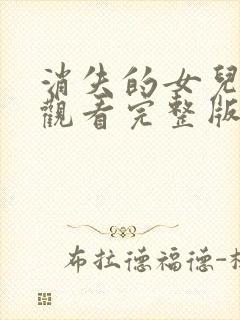 消失的女兒
觀看完整版
布拉德福德-